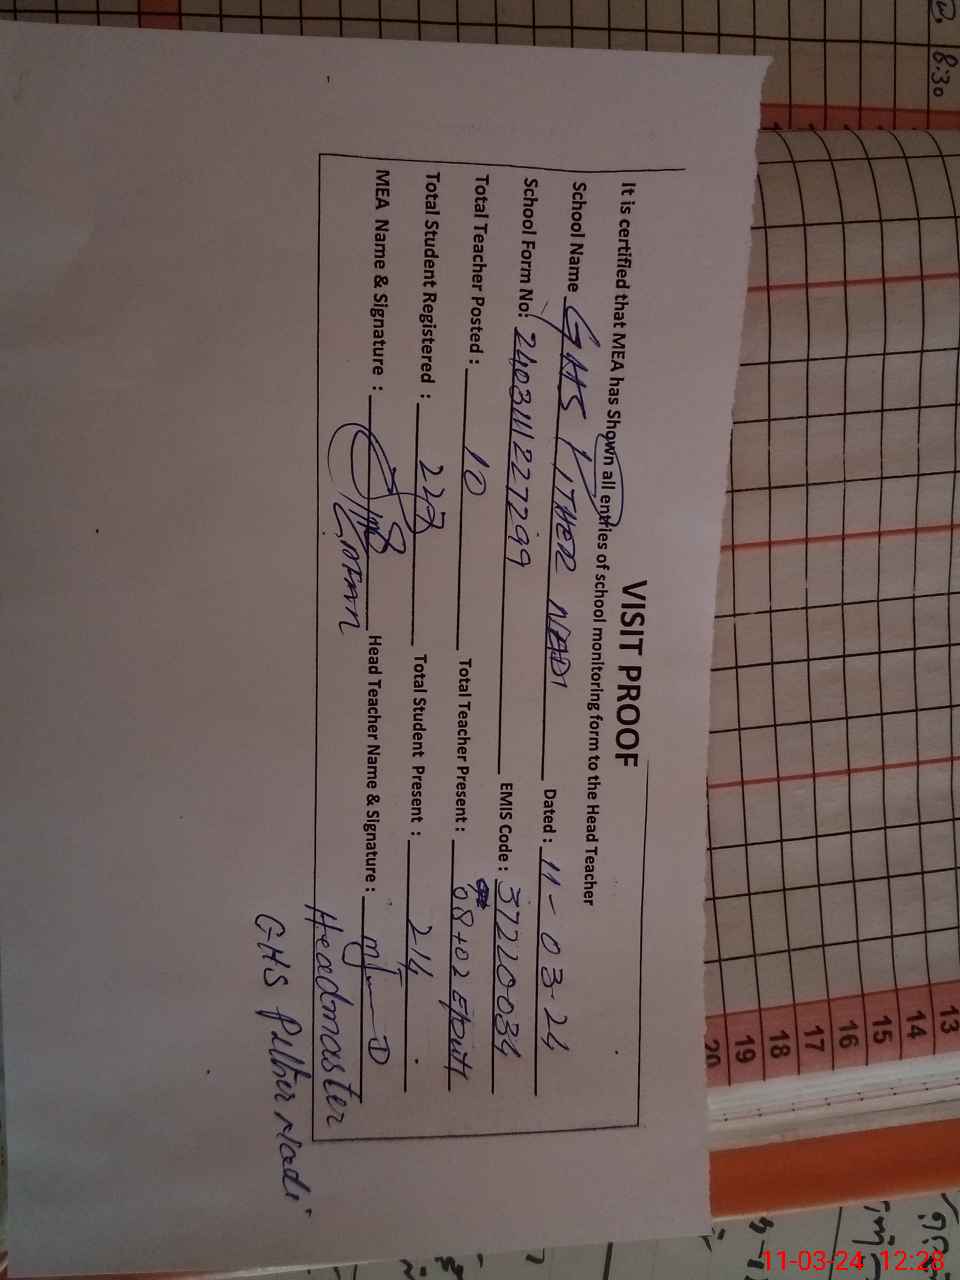 VISIT PROOF
It is certified that MEA has Shown all entries of school monitoring form to the Head Teacher
School Name GHS PITHER NADI Dated : 11-03-24
School Form No: 2403111227299 EMIS Code : 37220034
Total Teacher Posted : 10 Total Teacher Present : 08+02
Total Student Registered : 227 Total Student Present : 214
MEA Name & Signature : Head Teacher Name & Signature :
Headmaster
GHS Pither Nadi
8:30
13
14
15
16
17
18
19
20
11-03-24 12:28